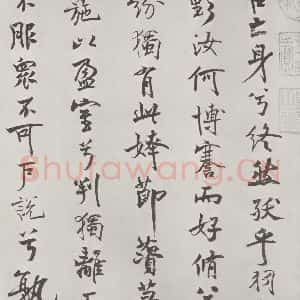 亡身兮終然殀乎羽
野汝何博謇而好脩兮
紛獨有此姱節薋菉
葹以盈室兮判獨離
不服衆不可戶說兮孰
Shufawang.cn